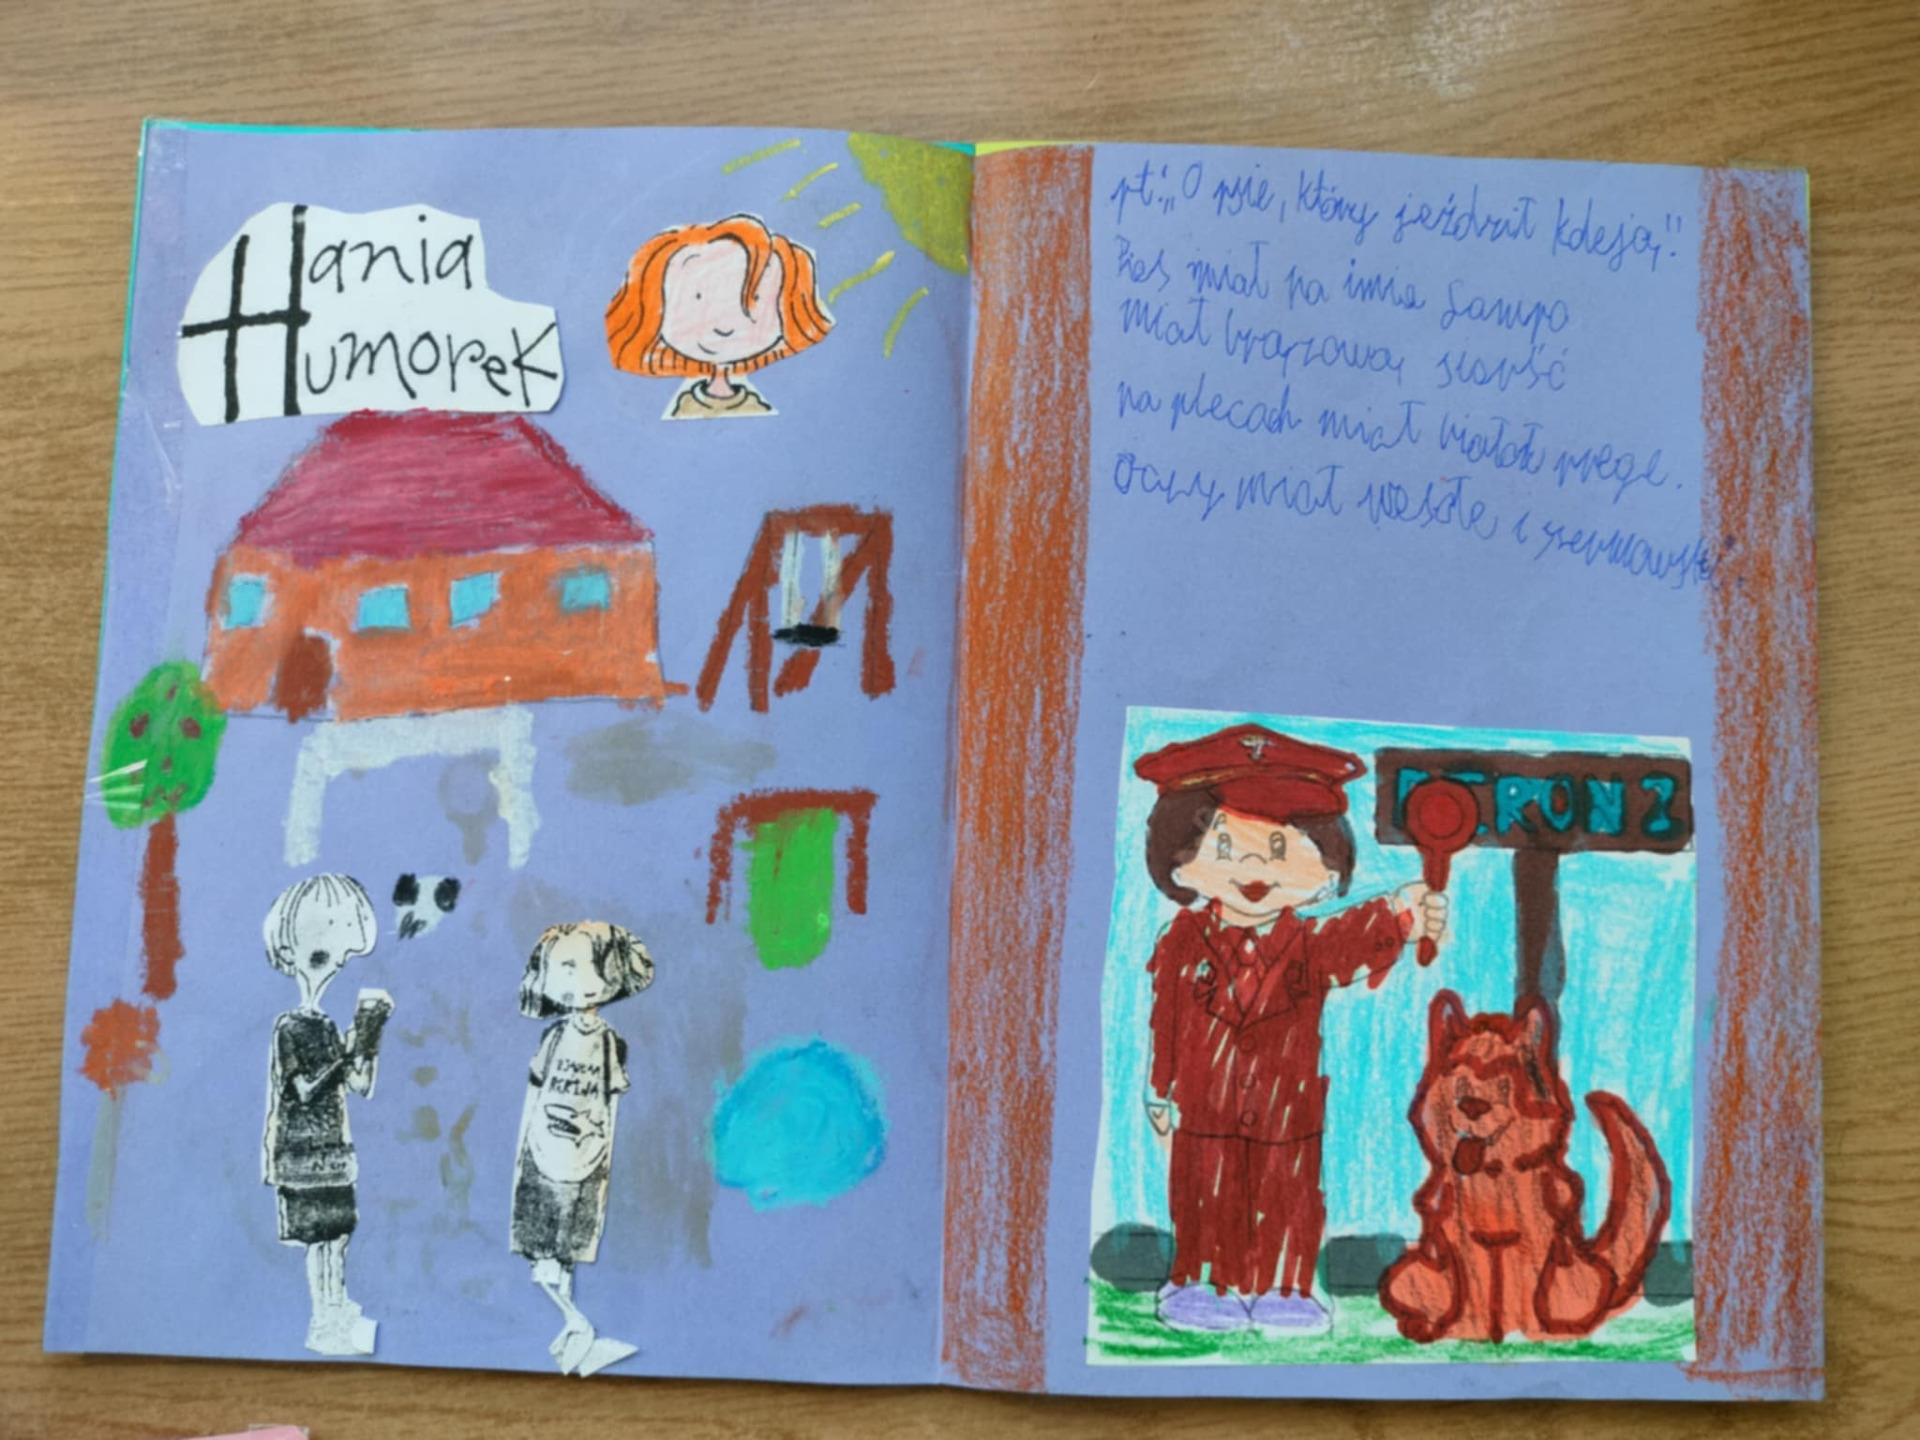 Hania
Humorek
pt.: "O psie, który jeździł koleją."
Pies miał na imie Lampo
miał brązową sierść
na plecach miał białą pręgę.
Oczy miał wesołe i
PERON 2